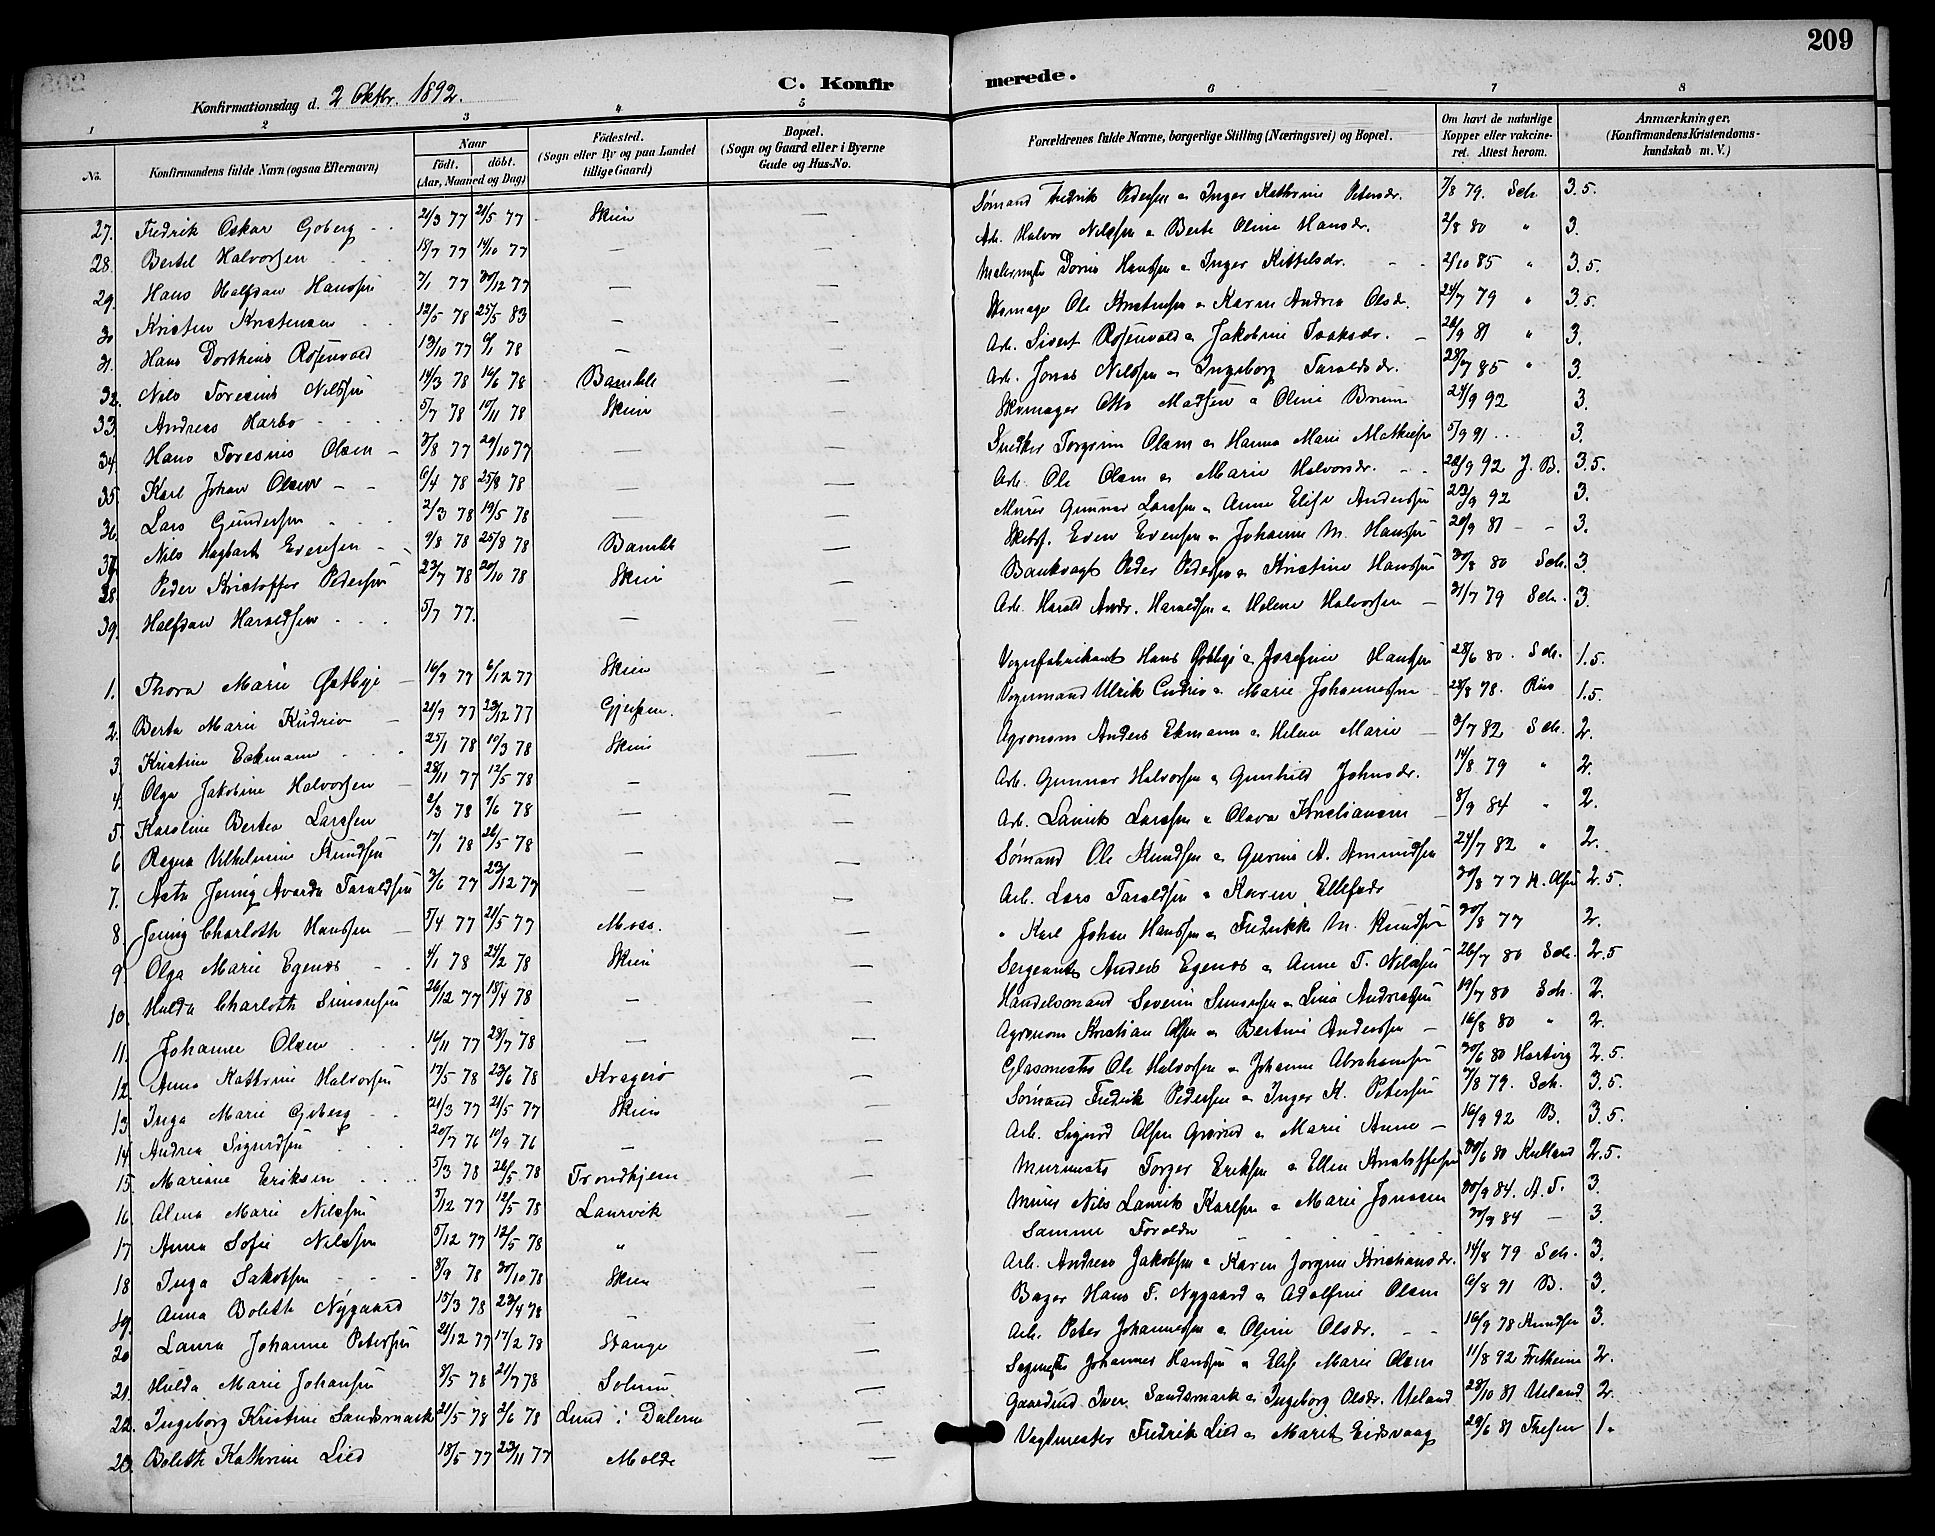 209
C. Konfirmerede.
Konfirmationsdag d. 2 Oktbr. 1892.
1 2 3 4 5 6 7 8
No. Konfirmandens fulde Navn (ogsaa Efternavn) Naar født. døbt. (Aar, Maaned og Dag) Fødested. (Sogn eller By og paa Landet tillige Gaard) Bopæl. (Sogn og Gaard eller i Byerne Gade og Hus-No. Forældrenes fulde Navne, borgerlige Stilling (Næringsvei) og Bopæl. Om havt de naturlige Kopper eller vakcineret. Attest herom. Anmærkninger. (Konfirmandens Kristendomskundskab m. V.)
27. Fredrik Oskar Goberg 21/3 77 21/5 77 Skien — Sømand Fredrik Pedersen & Inger Kathrine Petersdr. 7/8 79. Sch. 3.5.
28. Bertel Halvorsen 15/7 77 14/10 77 — — Arb. Halvor Nilssen & Berte Oline Hansdr. 2/8 80 " 3.
29. Hans Halfdan Hanssen 3/1 77 30/12 77 — — Malermester Hanssen & Inger Kittelsdr. 2/10 85 " 3.5.
30 Kristen Kristensen 12/5 78 25/5 83 — — Skomager Ole Kristensen & Karen Andrea Olsdr. 24/7 79 " 3.5.
31. Hans Dortheus Rosenvold 13/10 77 6/1 78 — — Arb. Sivert Rosenvold & Jakobine Isaksdr. 26/9 81 " 3.
32. Nils Toresius Nilssen 14/3 78 16/6 78 Bamble — Arb. Jonas Nilssen & Ingeborg Taraldsdr. 28/7 85 " 3.
33. Andreas Harbo 5/7 78 10/11 78 Skien — Skomager Otto Madsen & Oline Bruun 24/9 92 3.
34. Hans Toresius Olsen 3/8 77 29/10 77 — — Snedker Torgrim Olsen & Hanna Marie Mathiesen 5/9 91 3.
35. Karl Johan Olsen 6/4 78 25/8 78 — — Arb. Ole Olsen & Marie Halvorsdr. 28/9 92 J. B. 3.5.
36. Lars Gundersen 2/3 78 19/5 78 — — Murer Gunnar Larssen & Anne Elise Anderssen 23/9 92 3.
37. Nils Hagbart Evensen 9/8 78 25/8 78 Bamble — Skibsf. Even Evensen & Johanne M. Hanssen 20/9 81 3.
38. Peder Kristoffer Pedersen 22/7 78 20/10 78 Skien — Bankvagt Peder Pedersen & Kristine Hanssen 30/8 80 Sch. 3.
39. Halfdan Haraldsen 5/7 77. — — Arb. Harald Andr. Haraldsen & Helene Halvorsen 31/7 79 Sch. 3.
1. Thora Marie Østbye 16/9 77 6/12 77 Skien — Vognfabrikant Hans & Josefine Hanssen 28/6 80. Sch. 1.5.
2. Berta Marie Kudrio 21/9 77 23/12 77 Gjerpen. — Vognmand Ulrik Cudrio & Marie Johannessen 28/8 78. 1.5
3. Kristine Eckmann 25/1 78 10/3 78 Skien — Agronom Anders Ekmann & Helene Marie 3/7 82 Sch. 2.
4. Olga Jakobine Halvorsen 28/11 77 12/5 78 — — Arb. Gunnar Halvorsen & Gunhild Johnsdr. 14/8 79 " 2.
5. Karoline Bertea Larssen 2/3 78 9/6 78 — — Arb. Laurits Larssen & Olava Kristiansen 8/9 84 " 2.
6 Ragna Vilhelmine Knudsen 17/1 78 26/5 78 — — Sømand Ole Knudsen & Gurine A. Amundsen 24/7 82 " 2.
7. Asta Jenny Avarda Taraldsen 3/6 77 23/12 77 — — Arb. Lars Taraldsen & Karen Ellefsdr 30/8 77 K. Olsen 2.5.
8. Jenny Charloth Hanssen 5/4 77 21/5 77 Moss. — " Karl Johan Hanssen & Fredrikke M. Knudsen 30/8 77 2.
9. Olga Marie Egenes 4/1 78 24/2 78 Skien — Sergeant Anders Egenes & Anne T. Nilssen 26/7 80 Sch. 2.5
10. Hulda Charloth Simonsen 26/12 77 18/4 78 — — Handelsmand Severin Simonsen & Lina Andreassen 19/7 80 Sch. 2.
11. Johanne Olsen 16/11 77 28/7 78 — — Agronom Kristian Olsen & Bertine Anderssen 16/8 80 " 2.
12. Anna Kathrine Halvorsen 17/5 78 23/6 78 Kragerø — Glasmester Ole Halvorsen & Johanne Abrahamsen 30/6 80 Hartvig 2.5.
13. Inga Marie Goberg 21/3 77 21/5 77 Skien — Sømand Fredrik Pedersen & Inger K. Petersen 7/8 79. Sch. 3.5.
14. Andrea Sigurdsen 20/7 76 10/9 76 — — Arb. Sigurd Olsen & Marie Anne 16/9 92 B. 3.5.
15. Mariane Eriksen 5/3 78 26/5 78 Trondhjem — Murmester Torger Eriksen & Ellen Kristoffersen 30/6 80 2.5.
16. Alma Marie Nilssen 5/12 77 12/5 78 Laurvik — Murer Nils Laurits Karlsen & Marie Jonssen 30/9 84. A. T. 3.
17. Anna Sofie Nilssen 5/12 77 12/5 78 " — Samme Forældre 30/9 84 — 3.
18 Inga Jakobsen 8/9 78 30/10 78 Skien — Arb. Andreas Jakobsen & Karen Jørgine Kristiansdr. 14/8 79 Sch. 3.
19. Anna Boleth Nygaard 15/3 78 23/4 78 — — Bager Hans F. Nygaard & Adolfine Olsen 6/8 91 B. 3.
20 Laura Johanne Petersen 21/12 77 17/2 78 Stange — Arb. Peter Johannessen & Oline Olsdr. 16/9 78 Knudsen 3.
21. Hulda Marie Johansen 9/5 78 21/7 78 Solum — Sagmester Johannes Hanssen & Elise Marie Olsen 11/8 92 Fretheim 2.
22. Ingeborg Kristine Sandsmark 21/5 78 2/6 78 Lund i Dalene — Gaardmd Iver Sandsmark & Ingeborg Olsdr. Ueland 28/10 81 Ueland 2.
23. Boleth Kathrine Lied 18/5 77 23/11 77 Molde — Vagtmester Fredrik Lied & Marit Eidsvaag 29/6 81 Thesen 1.